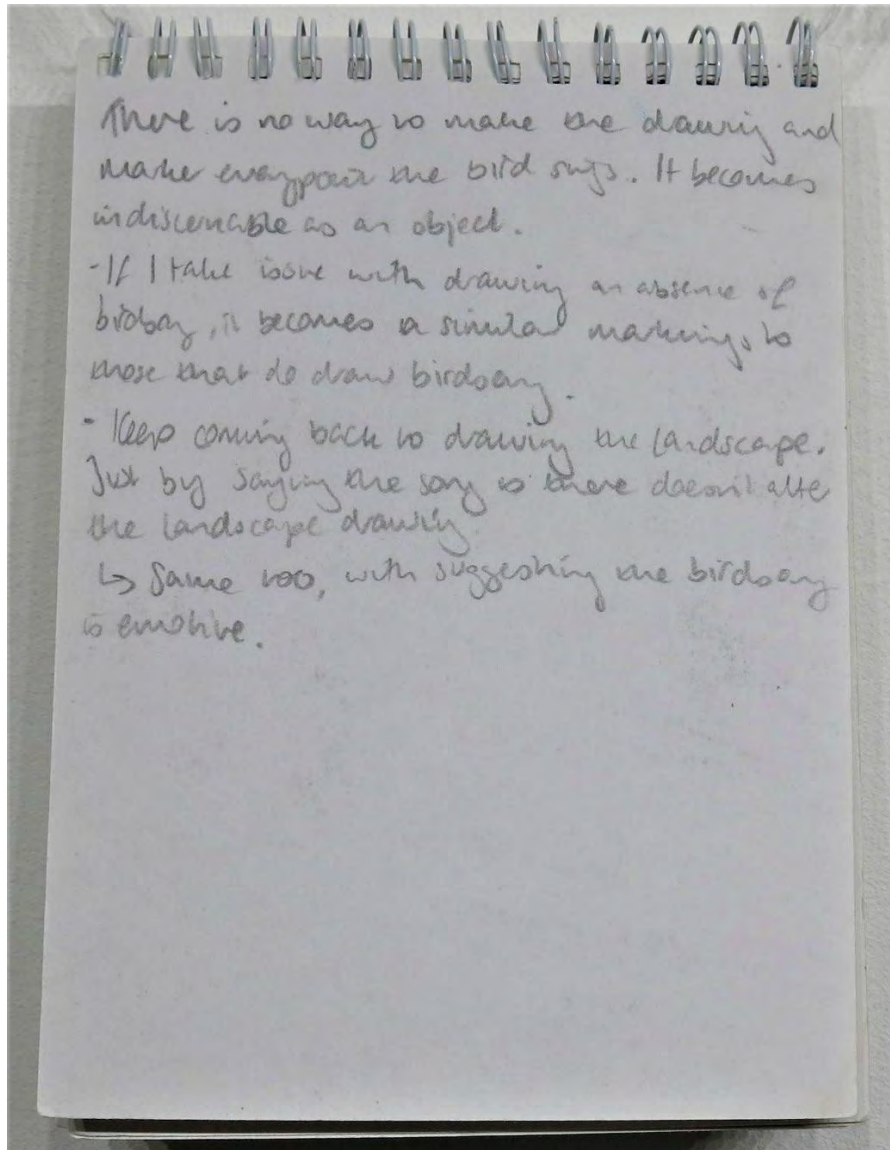 There is no way to make the drawing and
make every point the bird sings. It becomes
indiscernable as an object.
- If I take issue with drawing an absence of
birdsong, it becomes a similar markings to
those that do draw birdsong.
- Keep coming back to drawing the landscape.
Just by saying the song is there doesn't alter
the landscape drawing
↳ Same too, with suggesting the birdsong
is emotive.